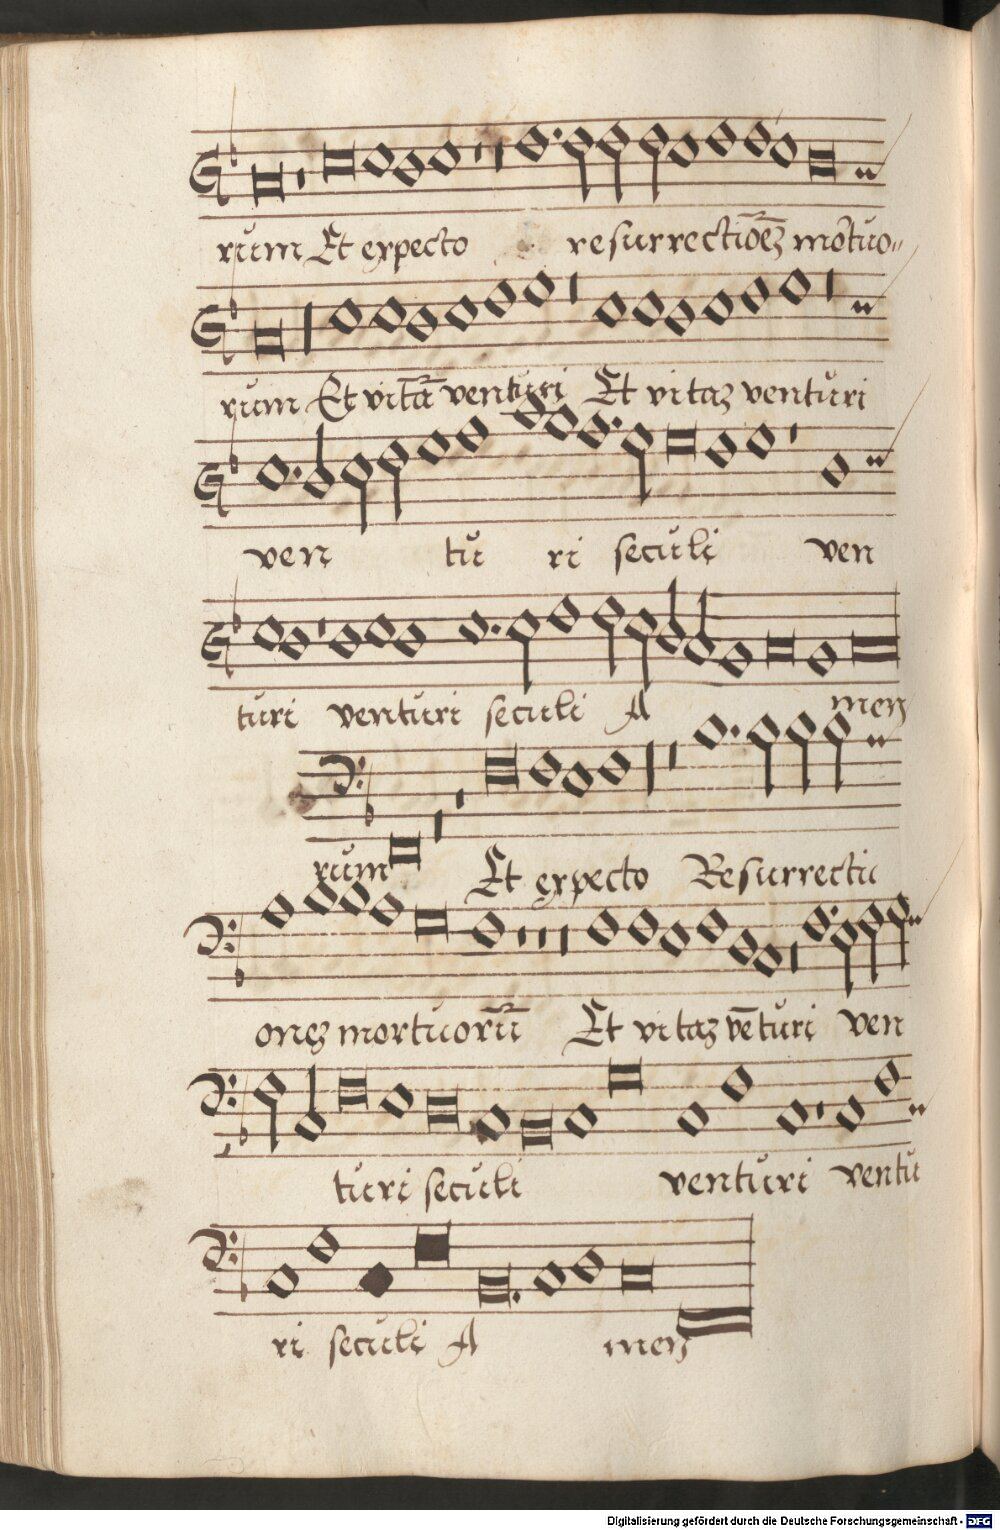 rum Et expecto resurrectiōēꝫ mōtuo„
rum Et vitā venturi Et vitaꝫ venturi
ven tu ri seculi ven
turi venturi seculi A men
rum Et expecto Resurrectiu
oneꝫ mortuorū Et vitaꝫ vēturi ven
turi seculi venturi ventu
ri seculi A men
Digitalisierung gefördert durch die Deutsche Forschungsgemeinschaft - DFG